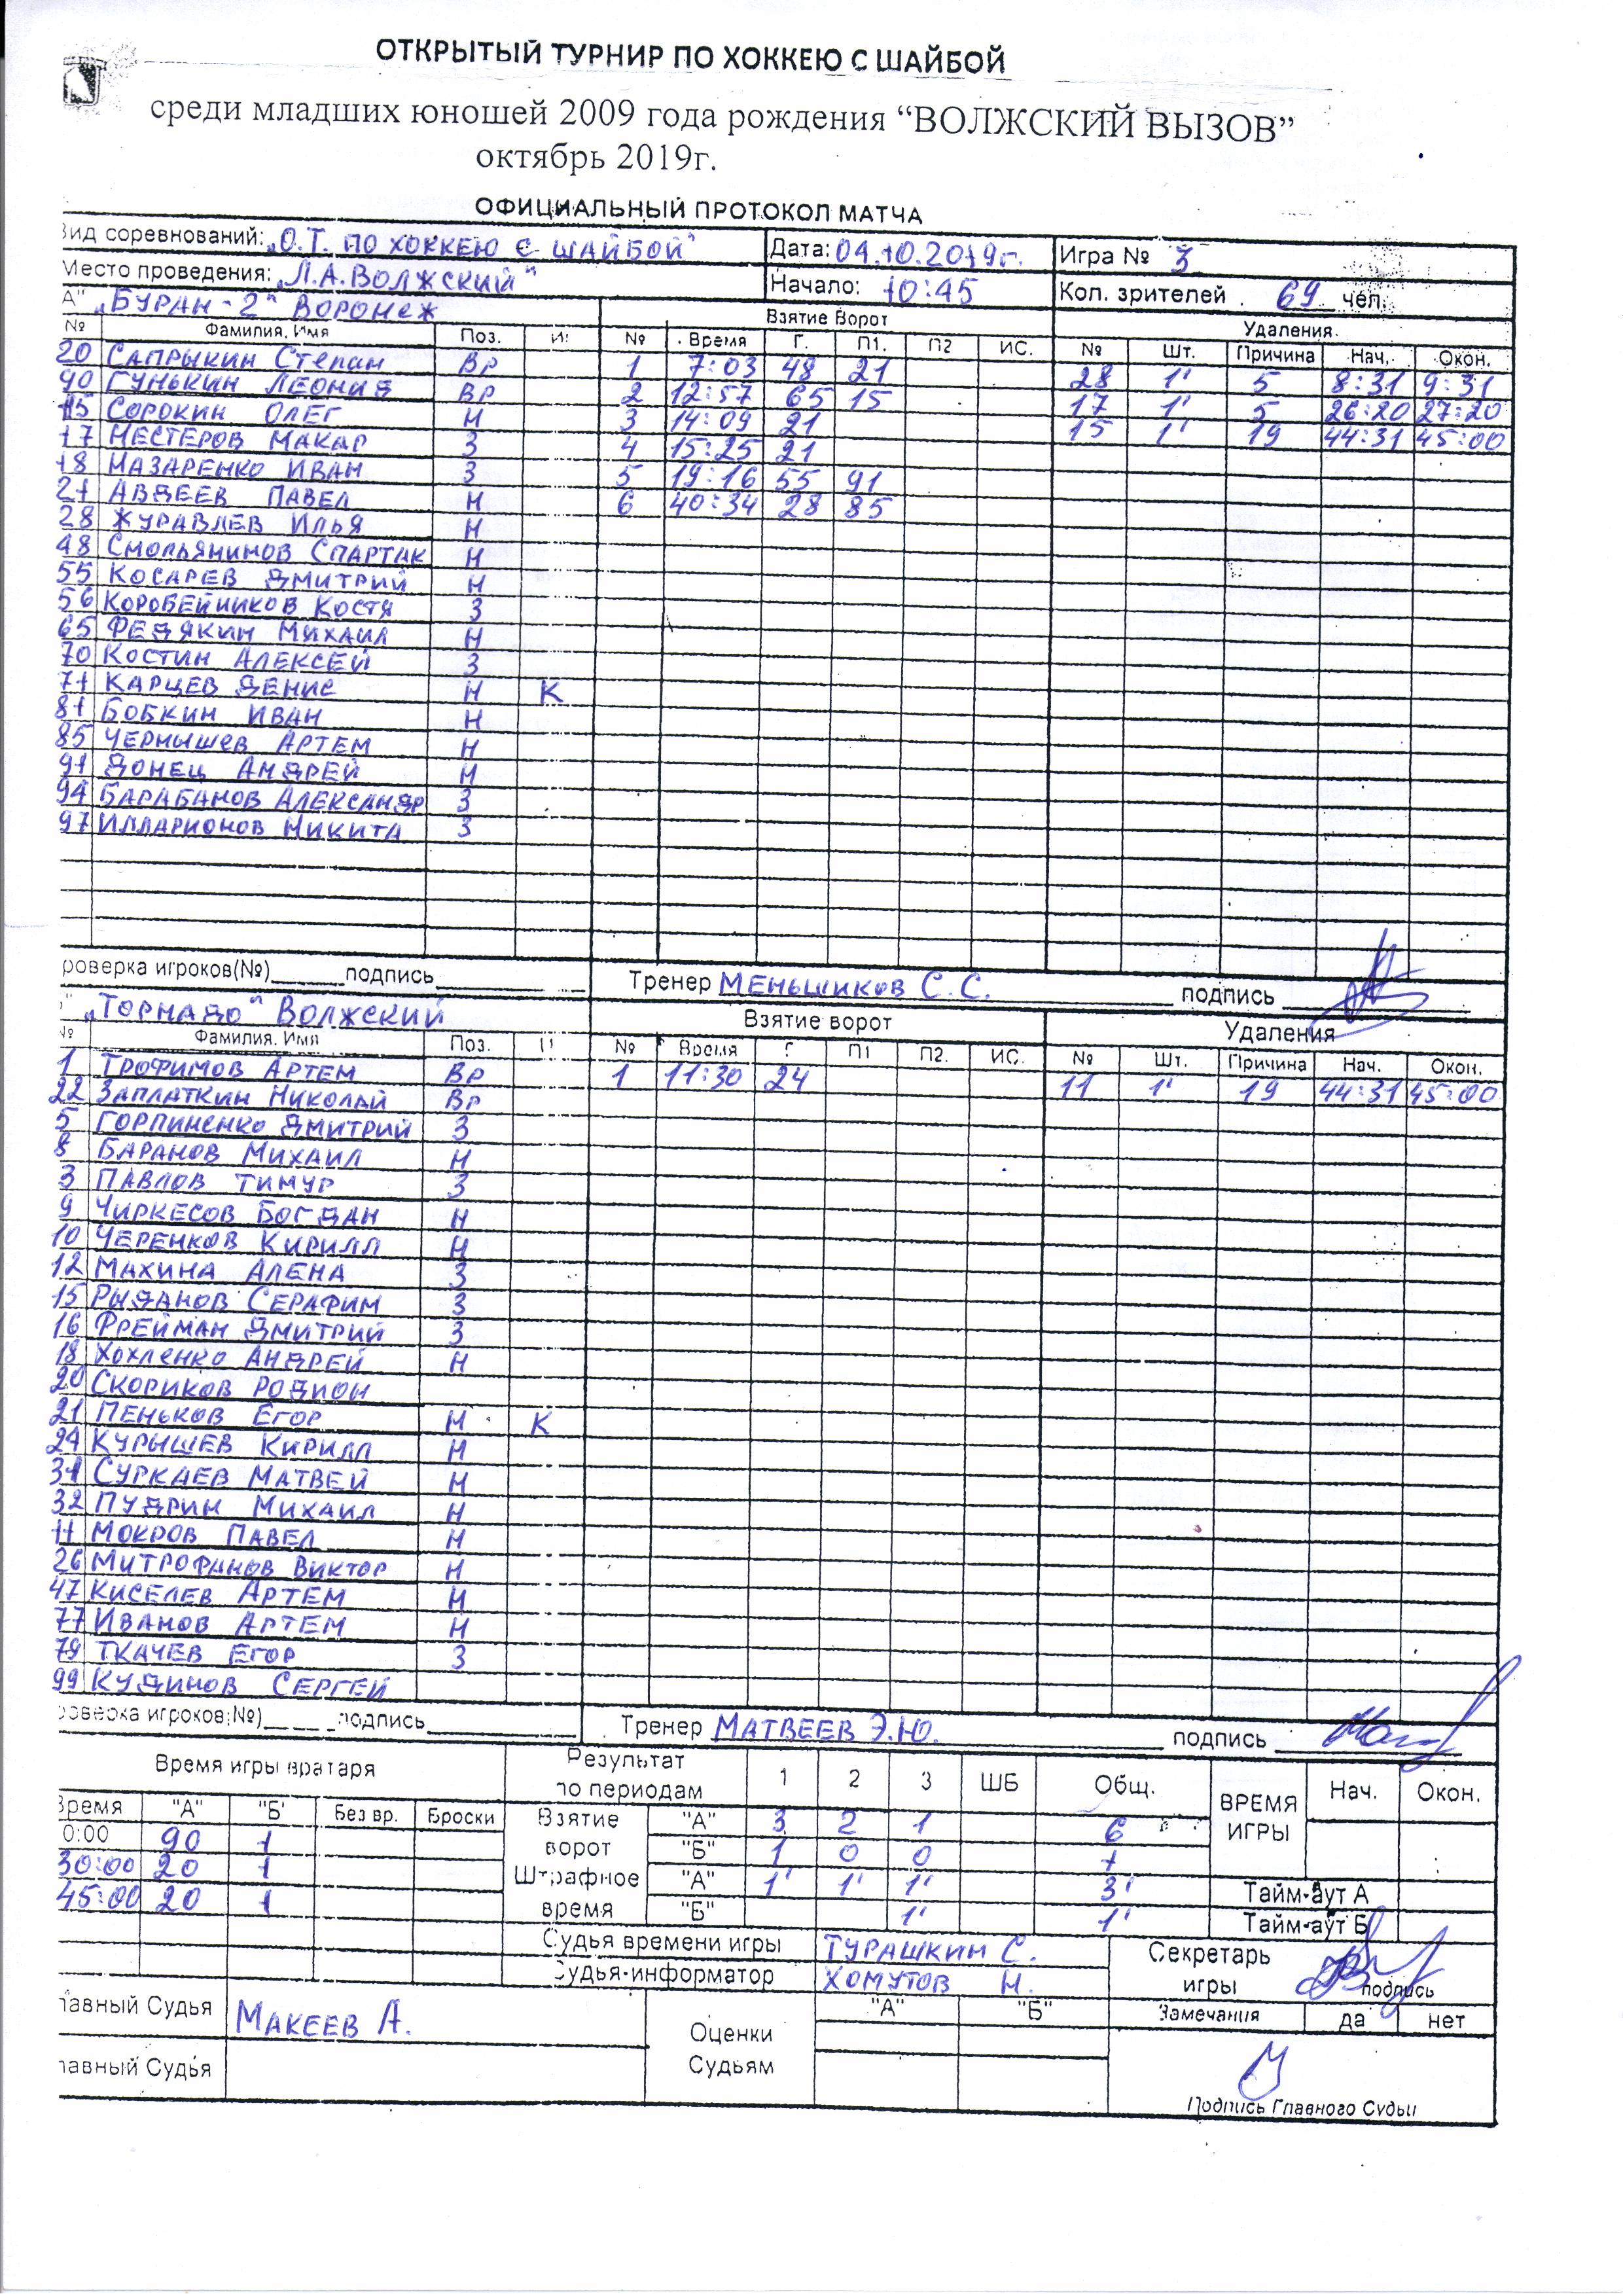 ОТКРЫТЫЙ ТУРНИР ПО ХОККЕЮ С ШАЙБОЙ
среди младших юношей 2009 года рождения “ВОЛЖСКИЙ ВЫЗОВ”
октябрь 2019г.
ОФИЦИАЛЬНЫЙ ПРОТОКОЛ МАТЧА
Вид соревнований: „О.Т. ПО ХОККЕЮ С ШАЙБОЙ“ Дата: 04.10.2019г. Игра № 3
Место проведения: „Л.А. ВОЛЖСКИЙ“ Начало: 10:45 Кол. зрителей 69 чел.
А" „БУРАН-2“ ВОРОНЕЖ Взятие Ворот Удаления.
№ Фамилия, Имя Поз. И № Время Г. П1. П2 ИС. № Шт. Причина Нач. Окон.
20 САПРЫКИН Степан Вр 1 7:03 48 21 28 1' 5 8:31 9:31
90 ГУНЬКИН ЛЕОНИД ВР 2 12:57 65 15 17 1' 5 26:20 27:20
15 СОРОКИН ОЛЕГ Н 3 14:09 21 15 1' 19 44:31 45:00
17 НЕСТЕРОВ МАКАР З 4 15:25 21
18 НАЗАРЕНКО ИВАН З 5 19:16 55 91
21 АВДЕЕВ ПАВЕЛ Н 6 40:34 28 85
28 ЖУРАВЛЕВ ИЛЬЯ Н
48 СМОЛЬЯНИНОВ СПАРТАК Н
55 КОСАРЕВ ДМИТРИЙ Н
56 КОРОБЕЙНИКОВ КОСТЯ З
65 ФЕДЯКИН МИХАИЛ Н
70 КОСТИН АЛЕКСЕЙ З
71 КАРЦЕВ ДЕНИС Н К
81 БОБКИН ИВАН Н
85 ЧЕРНЫШЕВ АРТЕМ Н
91 ДОНЕЦ АНДРЕЙ Н
94 БАРАБАНОВ АЛЕКСАНДР З
97 ИЛЛАРИОНОВ НИКИТА З
роверка игроков(№)______подпись________ Тренер МЕНЬШИКОВ С.С. подпись
" „ТОРНАДО“ ВОЛЖСКИЙ Взятие ворот Удаления
№ Фамилия, Имя Поз. № Время Г П1 П2. ИС. № Шт. Причина Нач. Окон.
1 ТРОФИМОВ АРТЕМ ВР 1 11:30 24 11 1' 19 44:31 45:00
22 ЗАПЛАТКИН НИКОЛАЙ Вр
5 ГОРПИНЕНКО ДМИТРИЙ З
8 БАРАНОВ МИХАИЛ Н
3 ПАВЛОВ ТИМУР З
9 ЧИРКЕСОВ БОГДАН Н
10 ЧЕРЕНКОВ КИРИЛЛ Н
12 МАХИНА АЛЕНА З
15 РЫДАНОВ СЕРАФИМ З
16 ФРЕЙМАН ДМИТРИЙ З
18 ХОХЛЕНКО АНДРЕЙ Н
20 СКОРИКОВ РОДИОН
21 ПЕНЬКОВ ЕГОР Н К
24 КУРЫШЕВ КИРИЛЛ Н
31 СУРКАЕВ МАТВЕЙ Н
32 ПУДРИН МИХАИЛ Н
11 МОКРОВ ПАВЕЛ Н
26 МИТРОФАНОВ ВИКТОР Н
47 КИСЕЛЕВ АРТЕМ Н
77 ИВАНОВ АРТЕМ Н
79 ТКАЧЕВ ЕГОР З
99 КУДИНОВ СЕРГЕЙ
роверка игроков(№)______подпись________ Тренер МАТВЕЕВ Э.Ю. подпись
Время игры вратаря Результат по периодам 1 2 3 ШБ Общ. ВРЕМЯ ИГРЫ Нач. Окон.
Время "А" "Б" Без вр. Броски Взятие ворот "А" 3 2 1 6
0:00 90 1 "Б" 1 0 0 1
30:00 20 1 Штрафное время "А" 1' 1' 1' 3' Тайм-аут А
45:00 20 1 "Б" 1' 1' Тайм-аут Б
Судья времени игры ТУРАШКИН С. Секретарь игры подпись
Судья-информатор ХОМУТОВ Н.
лавный Судья МАКЕЕВ А. Оценки Судьям "А" "Б" Замечания да нет
лавный Судья
Подпись Главного Судьи